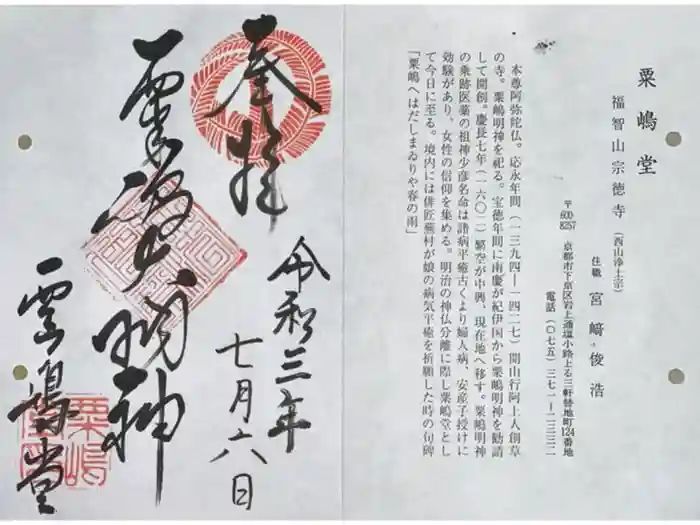 粟嶋堂
福智山宗徳寺（西山浄土宗）
住職 宮﨑俊浩
〒600-8257 京都市下京区岩上通塩小路上る三軒替地町124番地
電話（〇七五）三七一―二三三二
本尊阿弥陀仏。応永年間（一三九四―一四二七）開山行阿上人創草
の寺。粟嶋明神を祀る。宝徳年間に南慶が紀伊国から粟嶋明神を勧請
して開創。慶長七年（一六〇二）繁空が中興、現在地へ移す。粟嶋明神
の乘跡医薬の祖神少彦名命は諸病平癒古くより婦人病、安産子授けに
効験があり、女性の信仰を集める。明治の神仏分離に際し粟嶋堂とし
て今日に至る。境内には俳匠蕪村が娘の病気平癒を祈願した時の句碑
「粟嶋へはだしまゐりや春の雨」
奉拝
令和三年
七月六日
粟嶋大明神
粟嶋堂